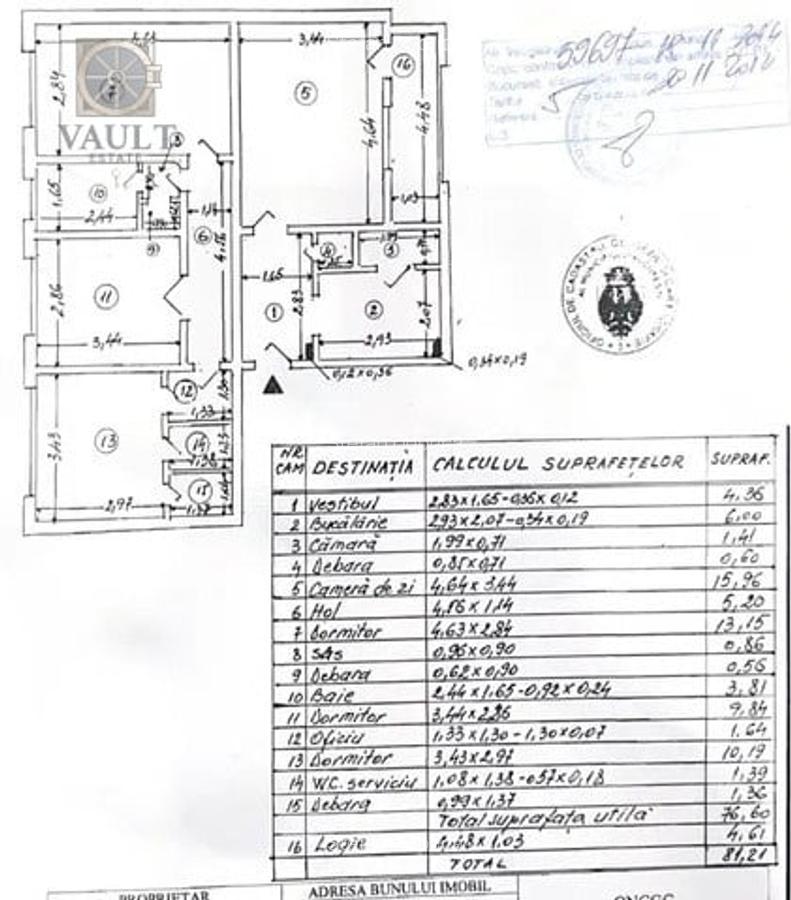 VAULT
ESTATE
59697 18 11 2014
20 11 2014
4,63
2,84
7
3,44
5
4,64
16
4,48
1,03
8
10
1,65
2,44
9
1,14
6
4,56
11
2,86
3,44
1,65
1
2,83
4
3
2
2,07
2,93
0,12x0,36
0,34x0,19
12
1,30
1,33
13
3,43
2,97
14
15
NR. CAM DESTINAȚIA CALCULUL SUPRAFEȚELOR SUPRAF.
1 Vestibul 2,83x1,65-0,36x0,12 4,36
2 Bucătărie 2,93x2,07-0,34x0,19 6,00
3 Cămară 1,99x0,71 1,41
4 Debara 0,85x0,71 0,60
5 Cameră de zi 4,64x3,44 15,96
6 Hol 4,56x1,14 5,20
7 Dormitor 4,63x2,84 13,15
8 SAS 0,96x0,90 0,86
9 Debara 0,62x0,90 0,56
10 Baie 2,44x1,65-0,92x0,24 3,81
11 Dormitor 3,44x2,86 9,84
12 Oficiu 1,33x1,30-1,30x0,07 1,64
13 Dormitor 3,43x2,97 10,19
14 W.C. serviciu 1,08x1,38-0,57x0,18 1,39
15 Debara 0,99x1,37 1,36
Total suprafața utilă 76,60
16 Logie 4,48x1,03 4,61
TOTAL 81,21
PROPRIETAR ADRESA BUNULUI IMOBIL